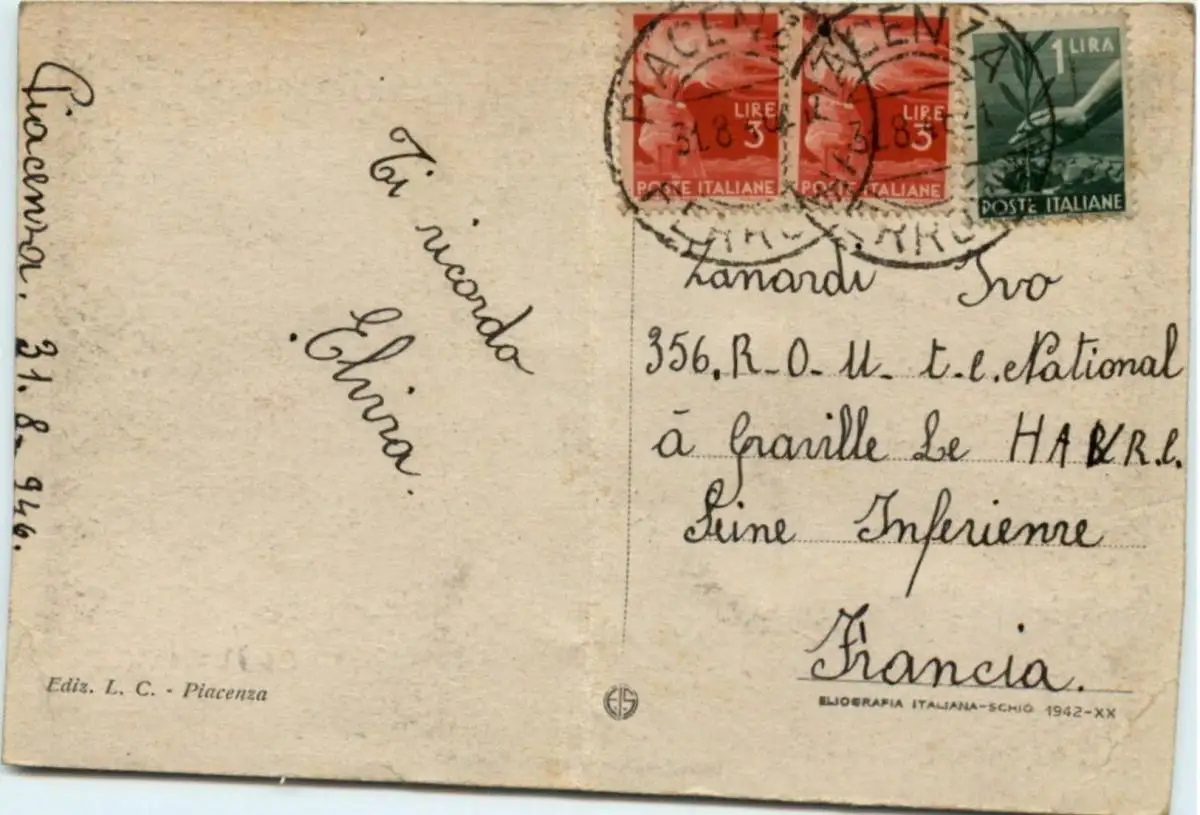 Piacenza. 31. 8- 946.
Ti ricordo
Elvira.
Ediz. L. C. - Piacenza
PIACENZA
31.8
FERRO
LIRE
3
POSTE ITALIANE
PIACENZA
31.8
FERRO
LIRE
3
POSTE ITALIANE
1 LIRA
POSTE ITALIANE
Zanardi Ivo
356. R-O-U- t-e. National
à Graville Le HAVR.e.
Seine Inferienre
Francia.
ELIOGRAFIA ITALIANA-SCHIO 1942-XX